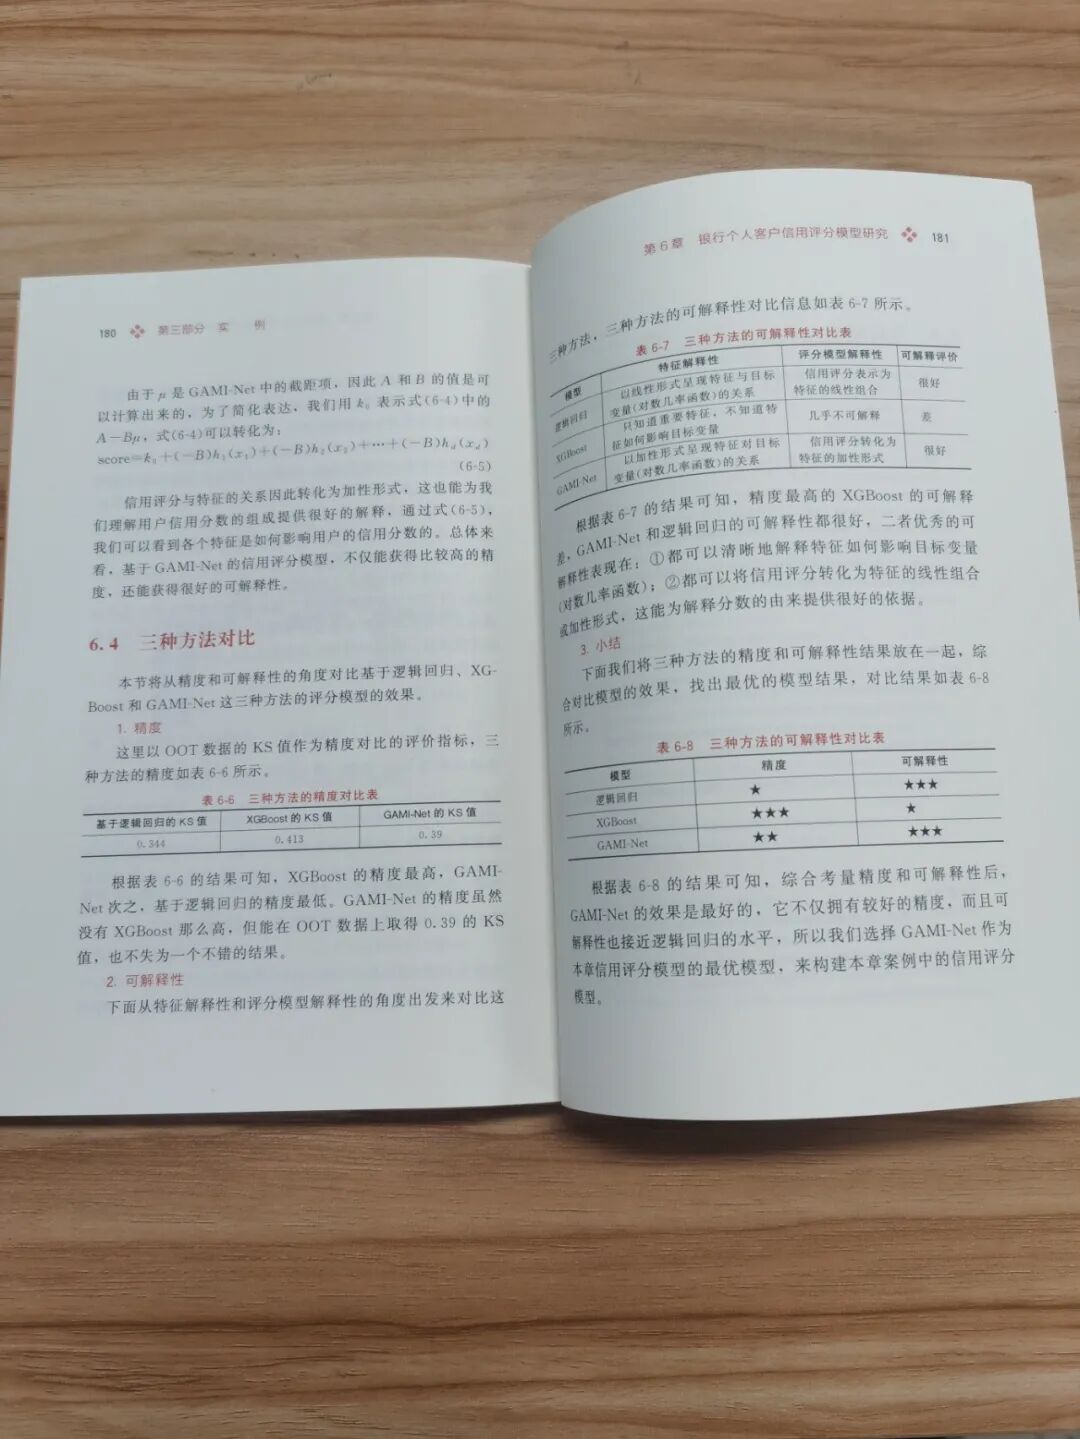 180 第三部分 实 例
由于 μ 是 GAMI-Net 中的截距项，因此 A 和 B 的值是可
以计算出来的，为了简化表达，我们用 k₀ 表示式(6-4)中的
A－Bμ，式(6-4)可以转化为：
score=k₀+(－B)h₁(x₁)+(－B)h₂(x₂)+⋯+(－B)h_d(x_d)
(6-5)
信用评分与特征的关系因此转化为加性形式，这也能为我
们理解用户信用分数的组成提供很好的解释，通过式(6-5)，
我们可以看到各个特征是如何影响用户的信用分数的。总体来
看，基于 GAMI-Net 的信用评分模型，不仅能获得比较高的精
度，还能获得很好的可解释性。
6.4 三种方法对比
本节将从精度和可解释性的角度对比基于逻辑回归、XG-
Boost 和 GAMI-Net 这三种方法的评分模型的效果。
1. 精度
这里以 OOT 数据的 KS 值作为精度对比的评价指标，三
种方法的精度如表 6-6 所示。
表 6-6 三种方法的精度对比表
基于逻辑回归的 KS 值 XGBoost 的 KS 值 GAMI-Net 的 KS 值
0.344 0.413 0.39
根据表 6-6 的结果可知，XGBoost 的精度最高，GAMI-
Net 次之，基于逻辑回归的精度最低。GAMI-Net 的精度虽然
没有 XGBoost 那么高，但能在 OOT 数据上取得 0.39 的 KS
值，也不失为一个不错的结果。
2. 可解释性
下面从特征解释性和评分模型解释性的角度出发来对比这
第 6 章 银行个人客户信用评分模型研究 181
三种方法，三种方法的可解释性对比信息如表 6-7 所示。
表 6-7 三种方法的可解释性对比表
模型 特征解释性 评分模型解释性 可解释评价
逻辑回归 以线性形式呈现特征与目标 信用评分表示为 很好
变量(对数几率函数)的关系 特征的线性组合
XGBoost 只知道重要特征，不知道特 几乎不可解释 差
征如何影响目标变量
GAMI-Net 以加性形式呈现特征对目标 信用评分转化为 很好
变量(对数几率函数)的关系 特征的加性形式
根据表 6-7 的结果可知，精度最高的 XGBoost 的可解释
差，GAMI-Net 和逻辑回归的可解释性都很好，二者优秀的可
解释性表现在：①都可以清晰地解释特征如何影响目标变量
(对数几率函数)；②都可以将信用评分转化为特征的线性组合
或加性形式，这能为解释分数的由来提供很好的依据。
3. 小结
下面我们将三种方法的精度和可解释性结果放在一起，综
合对比模型的效果，找出最优的模型结果，对比结果如表 6-8
所示。
表 6-8 三种方法的可解释性对比表
模型 精度 可解释性
逻辑回归 ★ ★★★
XGBoost ★★★ ★
GAMI-Net ★★ ★★★
根据表 6-8 的结果可知，综合考量精度和可解释性后，
GAMI-Net 的效果是最好的，它不仅拥有较好的精度，而且可
解释性也接近逻辑回归的水平，所以我们选择 GAMI-Net 作为
本章信用评分模型的最优模型，来构建本章案例中的信用评分
模型。